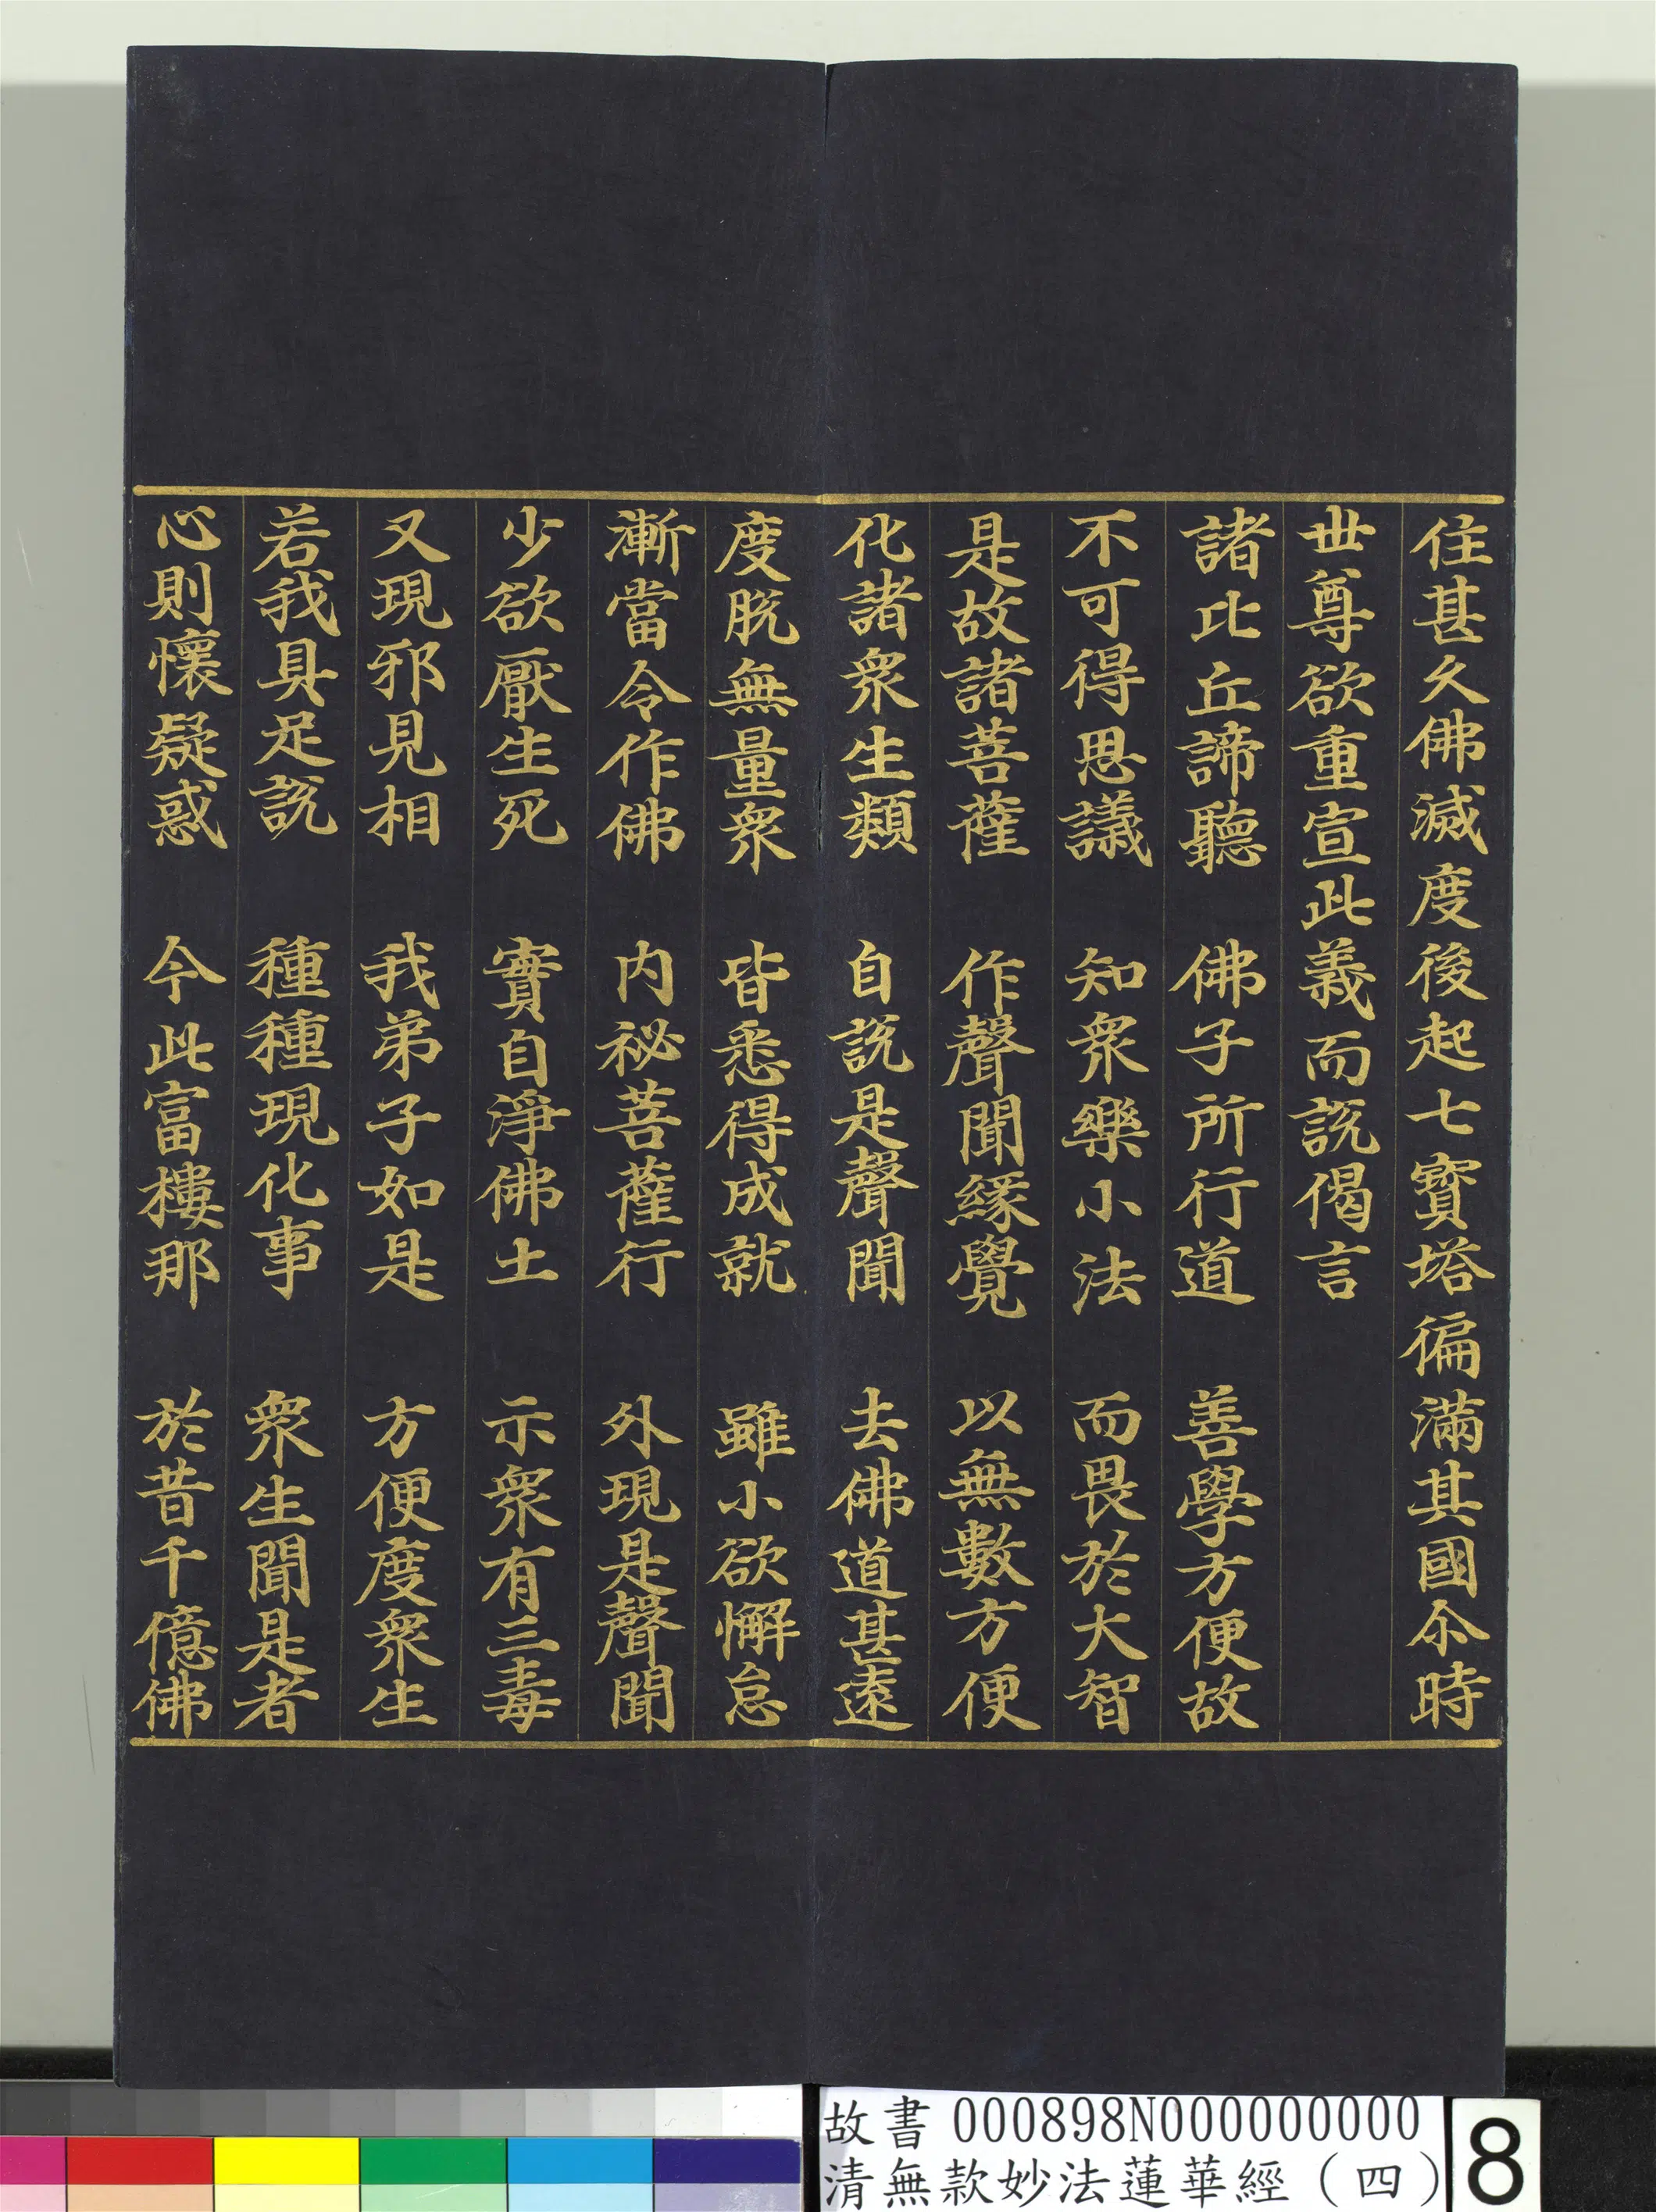 住甚久佛滅度後起七寶塔徧滿其國尒時
世尊欲重宣此義而說偈言
諸比丘諦聽　佛子所行道　善學方便故
不可得思議　知衆樂小法　而畏於大智
是故諸菩薩　作聲聞緣覺　以無數方便
化諸衆生類　自說是聲聞　去佛道甚遠
度脫無量衆　皆悉得成就　雖小欲懈怠
漸當令作佛　内祕菩薩行　外現是聲聞
少欲厭生死　實自淨佛土　示衆有三毒
又現邪見相　我弟子如是　方便度衆生
若我具足說　種種現化事　衆生聞是者
心則懷疑惑　今此富樓那　於昔千億佛
故書 000898N000000000
清無款妙法蓮華經（四）
8